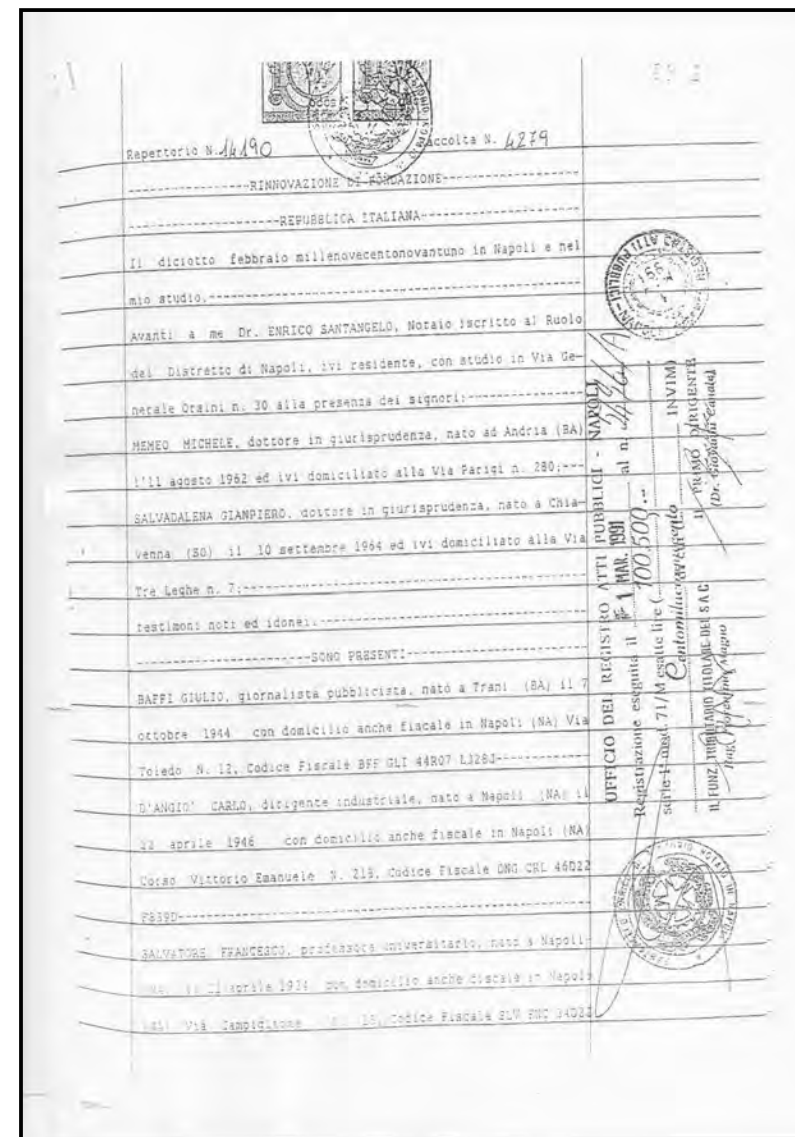 Repertorio N. 14190 Raccolta N. 4279
-----------------RINNOVAZIONE DI FONDAZIONE-------------------
---------------------REPUBBLICA ITALIANA----------------------
Il diciotto febbraio millenovecentonovantuno in Napoli e nel
mio studio.--------------------------------------------------
Avanti a me Dr. ENRICO SANTANGELO, Notaio iscritto al Ruolo
del Distretto di Napoli, ivi residente, con studio in Via Ge-
nerale Orsini n. 30 alla presenza dei signori:----------------
MEMEO MICHELE, dottore in giurisprudenza, nato ad Andria (BA)
l'11 agosto 1962 ed ivi domiciliato alla Via Parigi n. 280;---
SALVADALENA GIANPIERO, dottore in giurisprudenza, nato a Chia-
venna (SO) il 10 settembre 1964 ed ivi domiciliato alla Via
Tre Leghe n. 7;-----------------------------------------------
testimoni noti ed idonei.-------------------------------------
-------------------------SONO PRESENTI------------------------
BAFFI GIULIO, giornalista pubblicista, nato a Trani (BA) il 7
ottobre 1944 con domicilio anche fiscale in Napoli (NA) Via
Toledo N. 12, Codice Fiscale BFF GLI 44R07 L328J-----------
D'ANGIO' CARLO, dirigente industriale, nato a Napoli (NA) il
22 aprile 1946 con domicilio anche fiscale in Napoli (NA)
Corso Vittorio Emanuele N. 219, Codice Fiscale DNG CRL 46D22
F839D---------------------------------------------------------
SALVATORE FRANCESCO, professore universitario, nato a Napoli
aprile 1934 con domicilio anche fiscale in Napoli
Via Campiglione Codice Fiscale SLV FNC 34D23
UFFICIO DEL REGISTRO ATTI PUBBLICI - NAPOLI
Registrazione eseguita il 1 MAR. 1991 al n.
serie 1ª mod. 71/M esatte lire 100.500.-- INVIM
Centomilacinquecento
IL FUNZ. TRIBUTARIO TITOLARE DEL SAC
Rag. Fiorentino Magno
IL PRIMO DIRIGENTE
(Dr. Giovanni Canale)